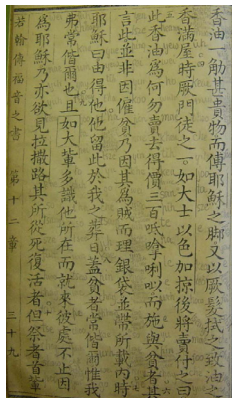 香油一觔甚貴物而傅耶穌之脚又以厥髮拭之致油之
香滿屋時厥門徒之一。如大士以色加掠後將賣付之曰
此香油為何勿賣去得價三百呧唥唎以而施與貧者其
言此並非因僱貧乃因其為賊而理銀袋並帶所載內時
耶穌曰由得他他留此於我之葬日蓋貧者常偕爾惟我
弗常偕爾也且如大輩多識他所在而就來彼處不止因
為耶穌乃亦欲見拉撒路其所從死復活者但祭者首輩
若翰傳福音之書 第十二章 二十九